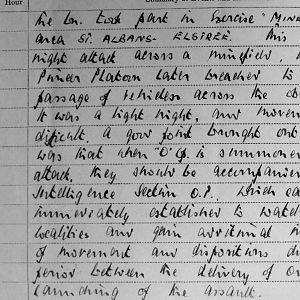 Hour
the Bn. took part in Exercise "MINE
area ST. ALBANS - ELSTREE. This
night attack across a minefield,
Pioneer Platoon later breached to
passage of vehicles across the
It was a light night, and movem
difficult. A good point brought out
was that when "O" Gp. is summone
attack, they should be accompanie
Intelligence Section O.P., which ca
immediately established to watch
localities and gain additional
of movement and dispositions du
period between the delivery of O
launching of the assault.